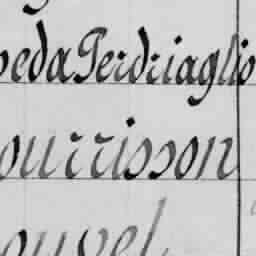 peda Perdriaglio
ourrisson
ouvel